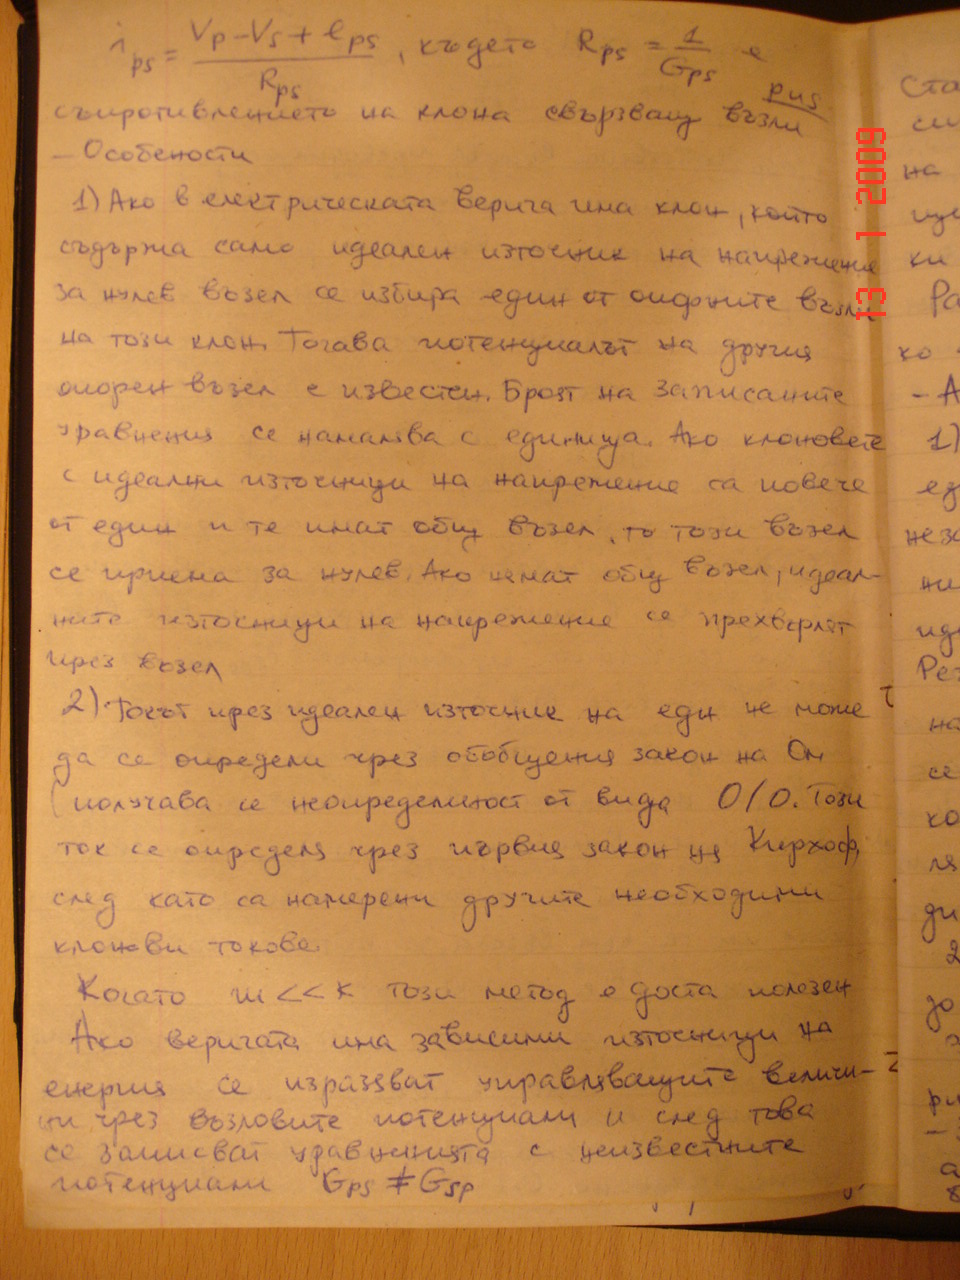 i_ps = (V_p - V_s + e_ps) / R_ps , където R_ps = 1/G_ps е
съпротивлението на клона свързващ възли p и s
- Особености
1) Ако в електрическата верига има клон, който
съдържа само идеален източник на напрежение
за нулев възел се избира един от опорните възли
на този клон. Тогава потенциалът на другия
опорен възел е известен. Броят на записаните
уравнения се намалява с единица. Ако клоновете
с идеални източници на напрежение са повече
от един и те имат общ възел, то този възел
се приема за нулев. Ако нямат общ възел, идеал-
ните източници на напрежение се прехвърлят
през възел
2) Токът през идеален източник на едн не може
да се определи чрез обобщения закон на Ом
(получава се неопределеност от вида 0/0. Този
ток се определя чрез първия закон на Кирхоф,
след като са намерени другите необходими
клонови токове.
Когато m << k този метод е доста полезен
Ако веригата има зависими източници на
енергия се изразяват управляващите величи-
ни чрез възловите потенциали и след това
се записват уравненията с неизвестните
потенциали G_ps ≠ G_sp
Ста
си
на
ки
Ра
ко
- А
1)
ед
неза
ни
иде
Рез
на
се
ко
ля
ди
2
за
ри
13 1 2009